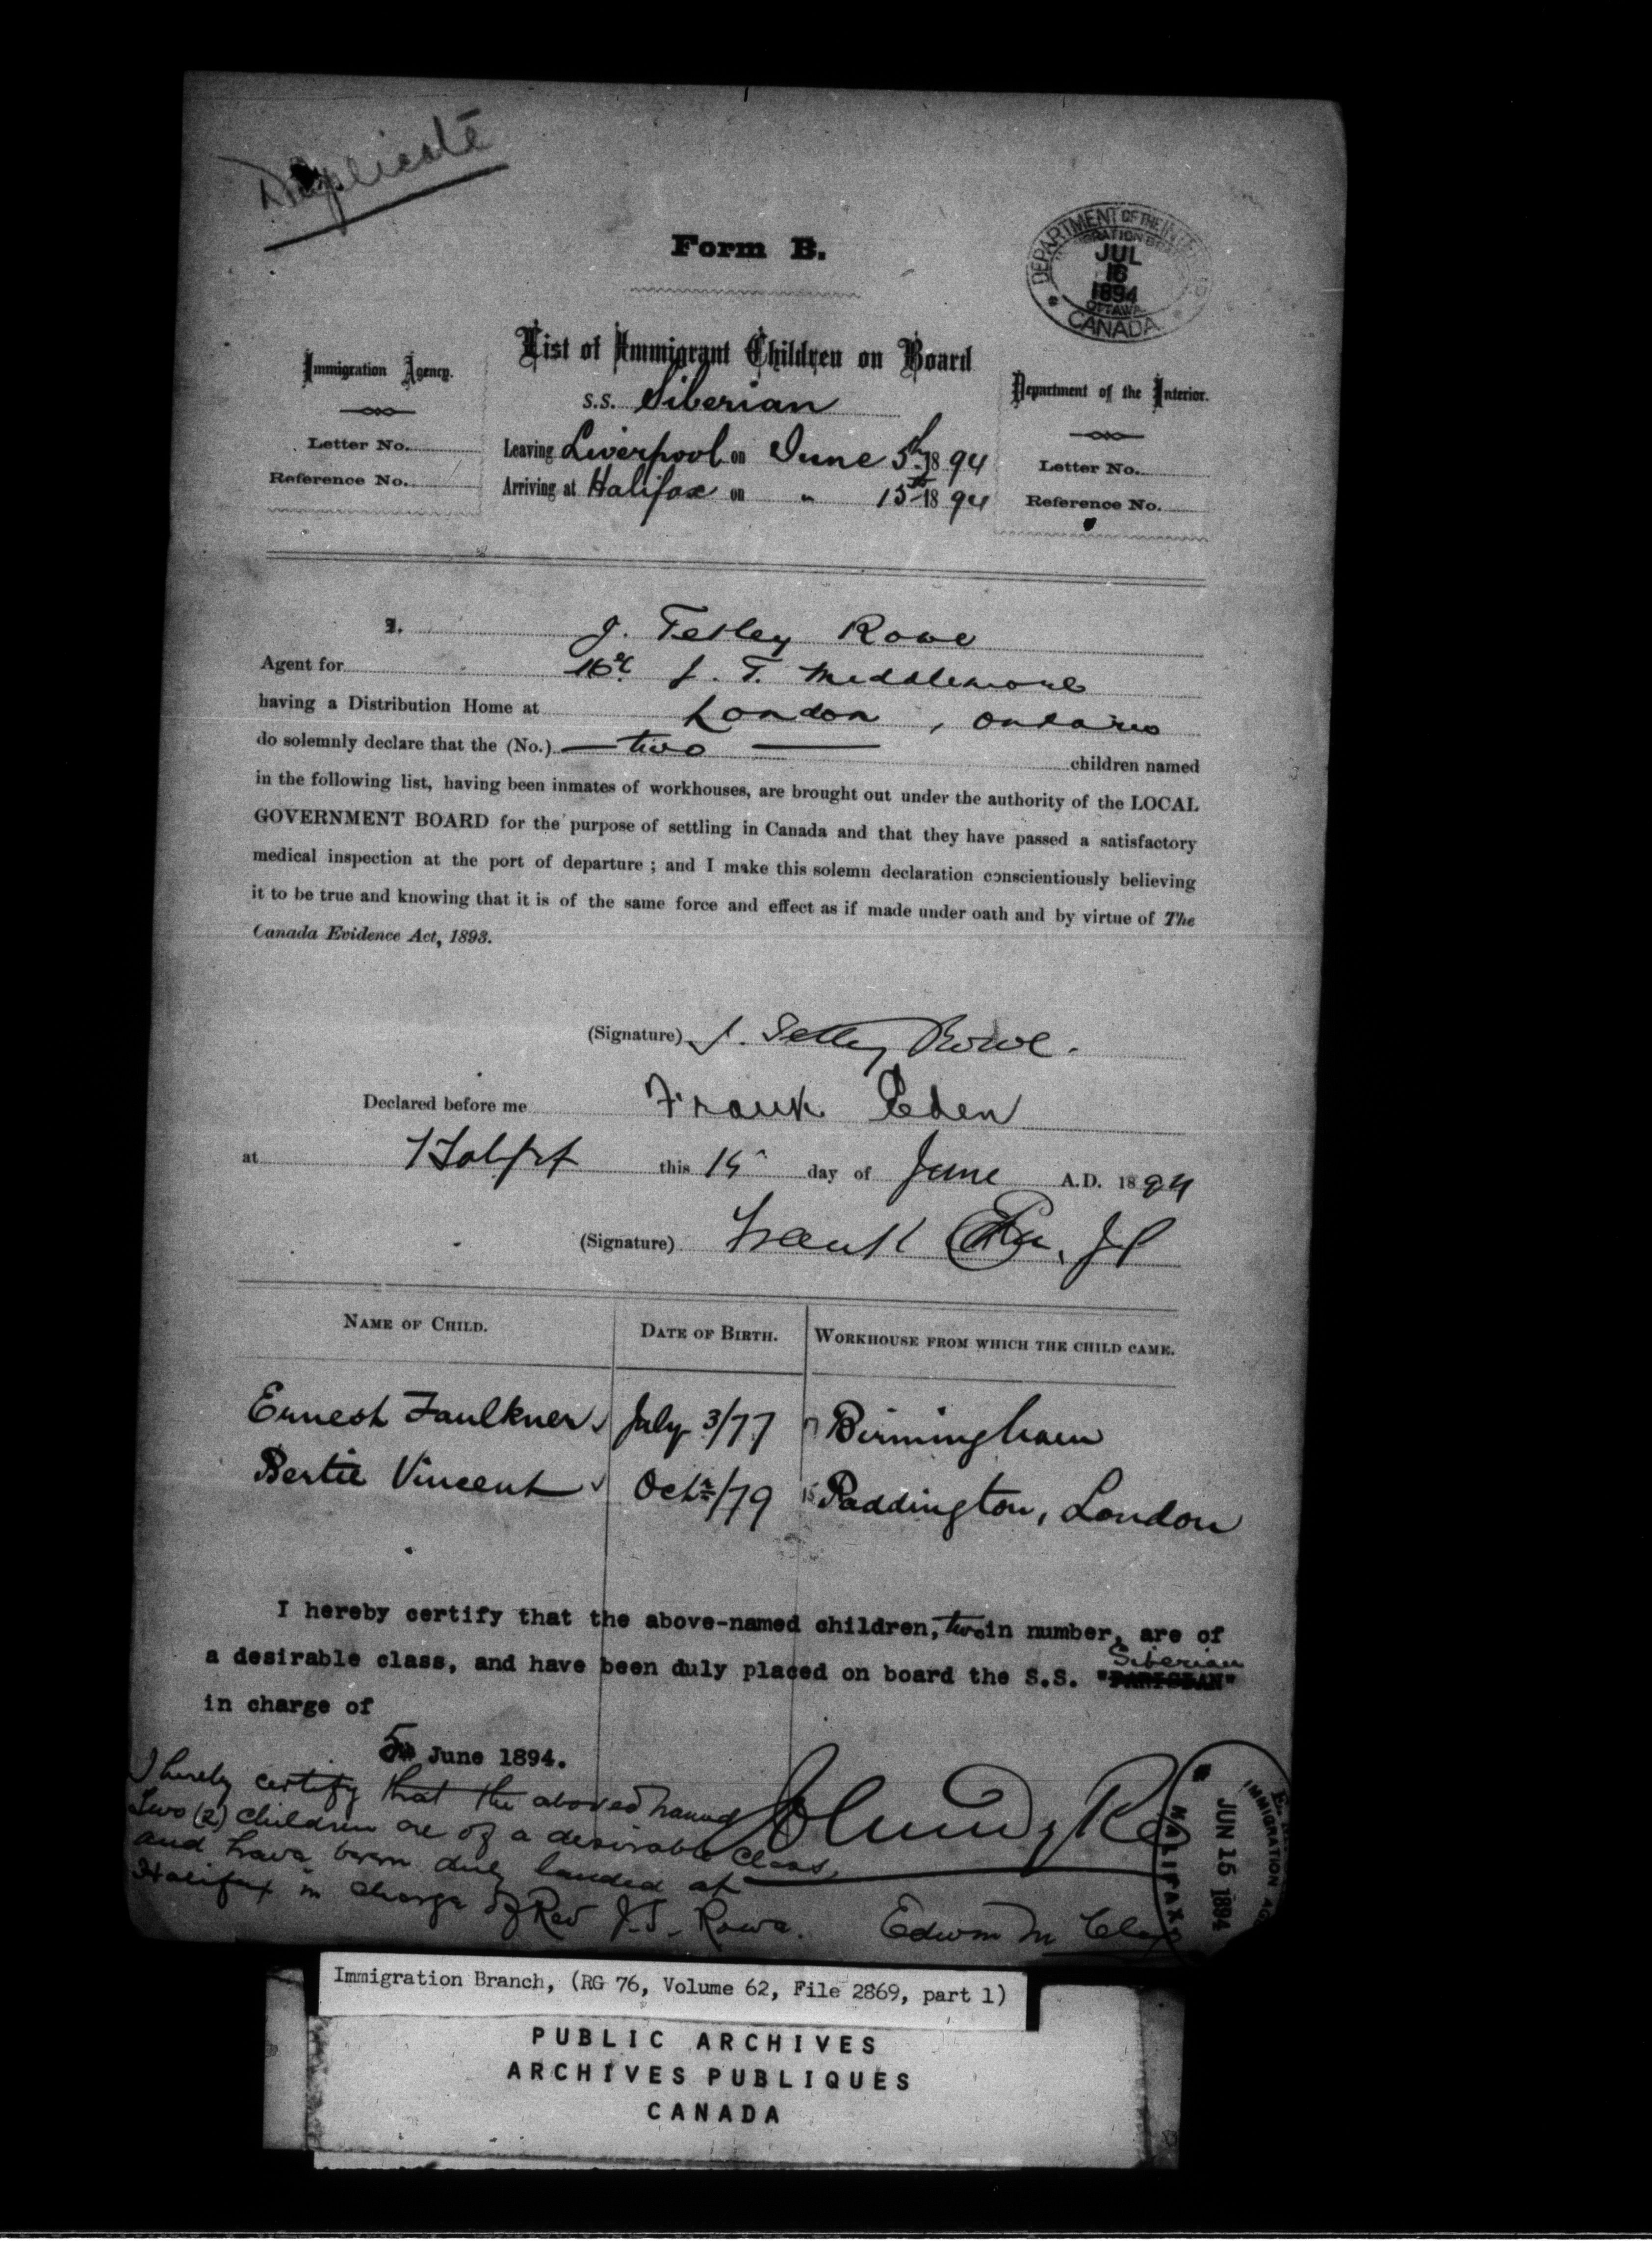 Duplicate
Form B.
DEPARTMENT OF THE INTERIOR
JUL
16
1894
OTTAWA
CANADA
List of Immigrant Children on Board
Immigration Agency.
Department of the Interior.
s.s. Siberian
Letter No.
Leaving Liverpool on June 5th 1894
Letter No.
Reference No.
Arriving at Halifax on " 15th 1894
Reference No.
I. J. Tetley Rowe
Agent for Mr J. T. Middlemore
having a Distribution Home at London, Ontario
do solemnly declare that the (No.) two children named
in the following list, having been inmates of workhouses, are brought out under the authority of the LOCAL
GOVERNMENT BOARD for the purpose of settling in Canada and that they have passed a satisfactory
medical inspection at the port of departure ; and I make this solemn declaration conscientiously believing
it to be true and knowing that it is of the same force and effect as if made under oath and by virtue of The
Canada Evidence Act, 1893.
(Signature) J. Tetley Rowe.
Declared before me Frank Eden
at this 15 day of June A.D. 1894
(Signature) Frank Eden, JP
NAME OF CHILD. DATE OF BIRTH. WORKHOUSE FROM WHICH THE CHILD CAME.
Ernest Faulkner July 3/77 17 Birmingham
Bertie Vincent Oct /79 15 Paddington, London
I hereby certify that the above-named children, two in number, are of
a desirable class, and have been duly placed on board the S.S. "PARISIAN" Siberian
in charge of
5th June 1894.
I hereby certify that the above named
Two (2) children are of a desirable class,
and have been duly landed at
Halifax in charge of Rev J. T. Rowe.
Edwin M Clay
HALIFAX
JUN 15 1894
IMMIGRATION
Immigration Branch, (RG 76, Volume 62, File 2869, part 1)
PUBLIC ARCHIVES
ARCHIVES PUBLIQUES
CANADA